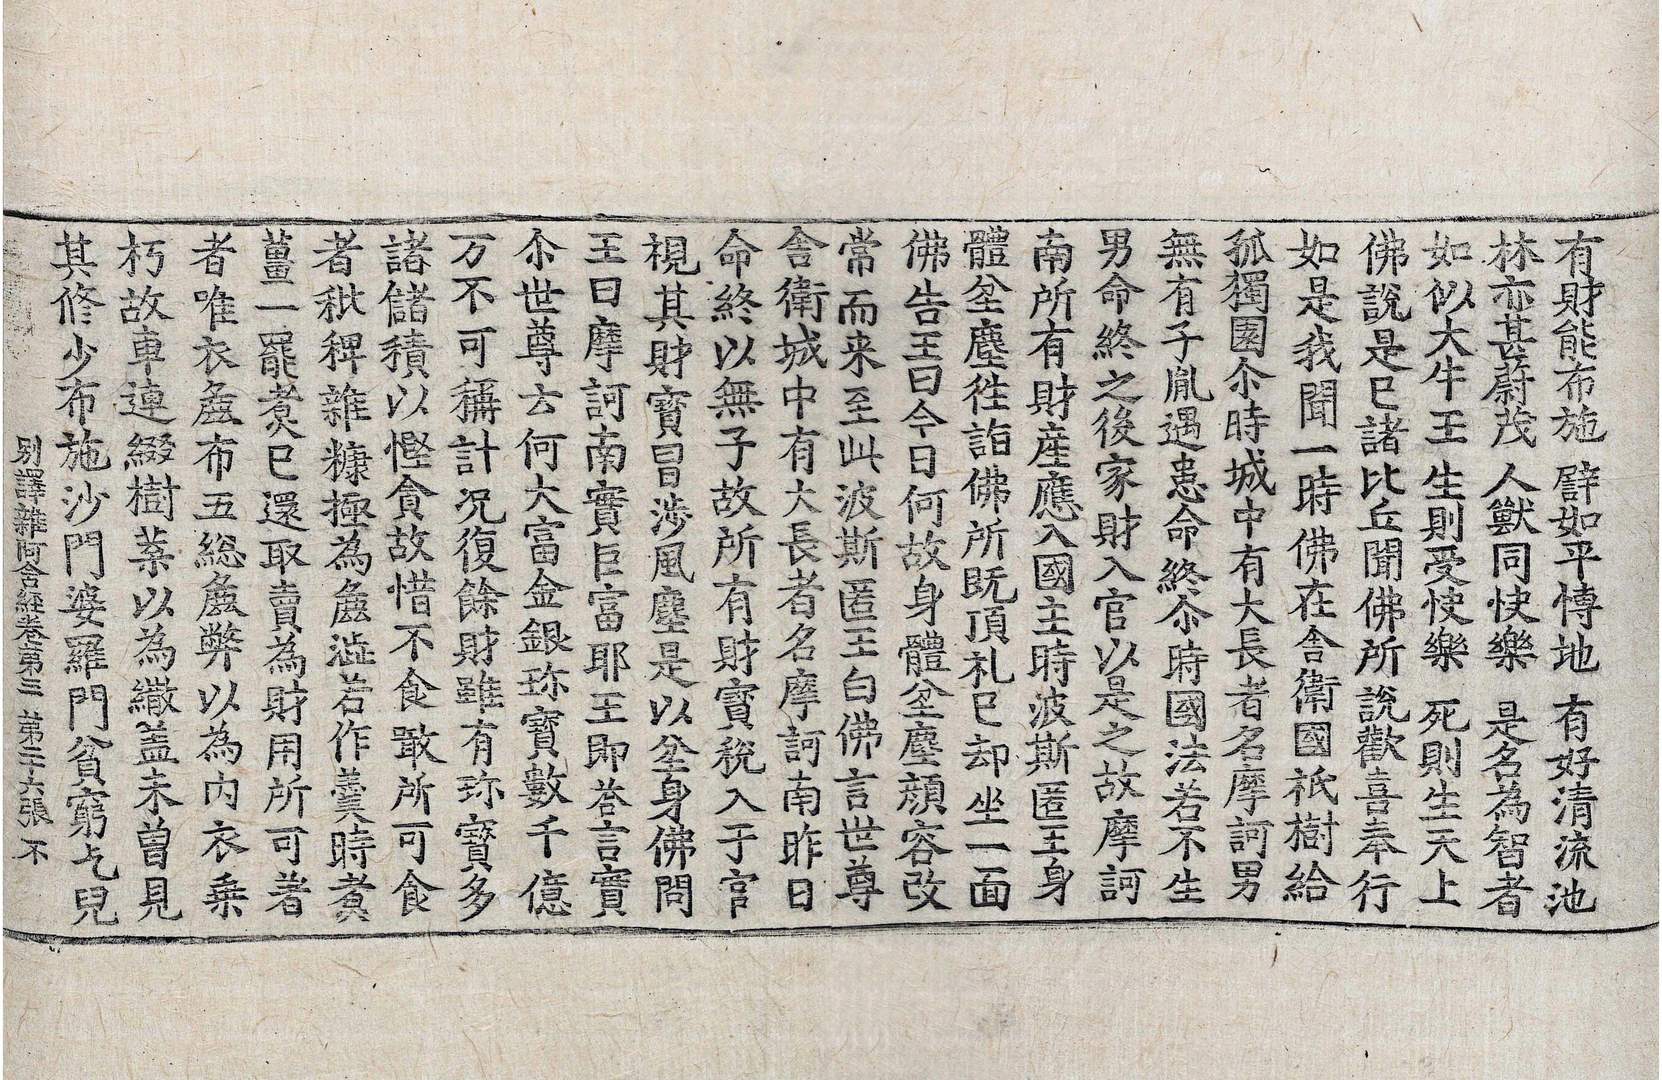 有財能布施　譬如平博地　有好清流池
林亦甚蔚茂　人獸同快樂　是名為智者
如似大牛王　生則受快樂　死則生天上
佛說是已諸比丘聞佛所說歡喜奉行
如是我聞一時佛在舍衛國祇樹給
孤獨園尒時城中有大長者名摩訶男
無有子胤遇患命終尒時國法若不生
男命終之後家財入官以是之故摩訶
南所有財産應入國主時波斯匿王身
體坌塵徃詣佛所既頂礼已却坐一面
佛告王曰今日何故身體坌塵顔容改
常而来至此波斯匿王白佛言世尊
舍衛城中有大長者名摩訶南昨日
命終以無子故所有財寶稅入于官
視其財寶冒涉風塵是以坌身佛問
王曰摩訶南實巨富耶王即荅言實
尒世尊云何大富金銀珎寶數千億
万不可稱計況復餘財雖有珎寶多
諸儲積以慳貪故惜不食噉所可食
者秕稗雜糠極為麁澁若作羹時煑
薑一罷煑已還取賣為財用所可著
者唯衣麁布五総麁弊以為内衣乗
朽故車連綴樹葉以為繖盖未曽見
其修少布施沙門婆羅門貧窮乞兒
別譯雜阿含經卷第三　第二十六張　不